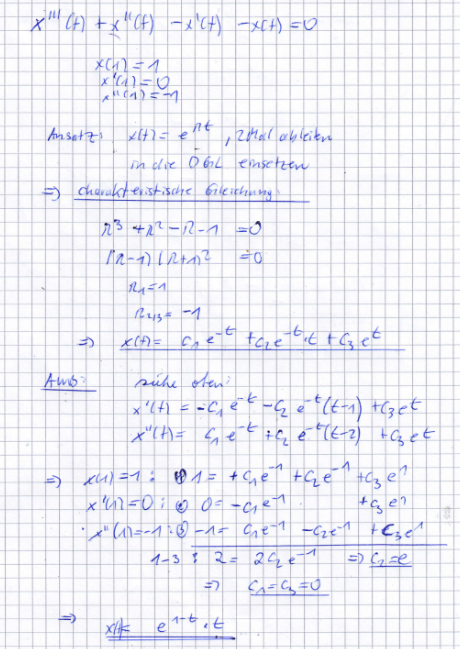 x'''(t) + x''(t) - x'(t) - x(t) = 0
x(1) = 1
x'(1) = 0
x''(1) = -1
Ansatz: x(t) = e^{rt}, 2 Mal ableiten
in die DGL einsetzen
=> charakteristische Gleichung:
r^3 + r^2 - r - 1 = 0
(r-1)(r+1)^2 = 0
r_1 = 1
r_{2/3} = -1
=> x(t) = c_1 e^{-t} + c_2 e^{-t}·t + c_3 e^t
AWB: siehe oben:
x'(t) = -c_1 e^{-t} - c_2 e^{-t}(t-1) + c_3 e^t
x''(t) = c_1 e^{-t} + c_2 e^{-t}(t-2) + c_3 e^t
=> x(1) = 1 : ① 1 = + c_1 e^{-1} + c_2 e^{-1} + c_3 e^1
x'(1) = 0 : ② 0 = -c_1 e^{-1} + c_3 e^1
x''(1) = -1 : ③ -1 = c_1 e^{-1} - c_2 e^{-1} + c_3 e^1
1-3 : 2 = 2c_2 e^{-1} => c_2 = e
=> c_1 = c_3 = 0
=> x(t) = e^{1-t}·t